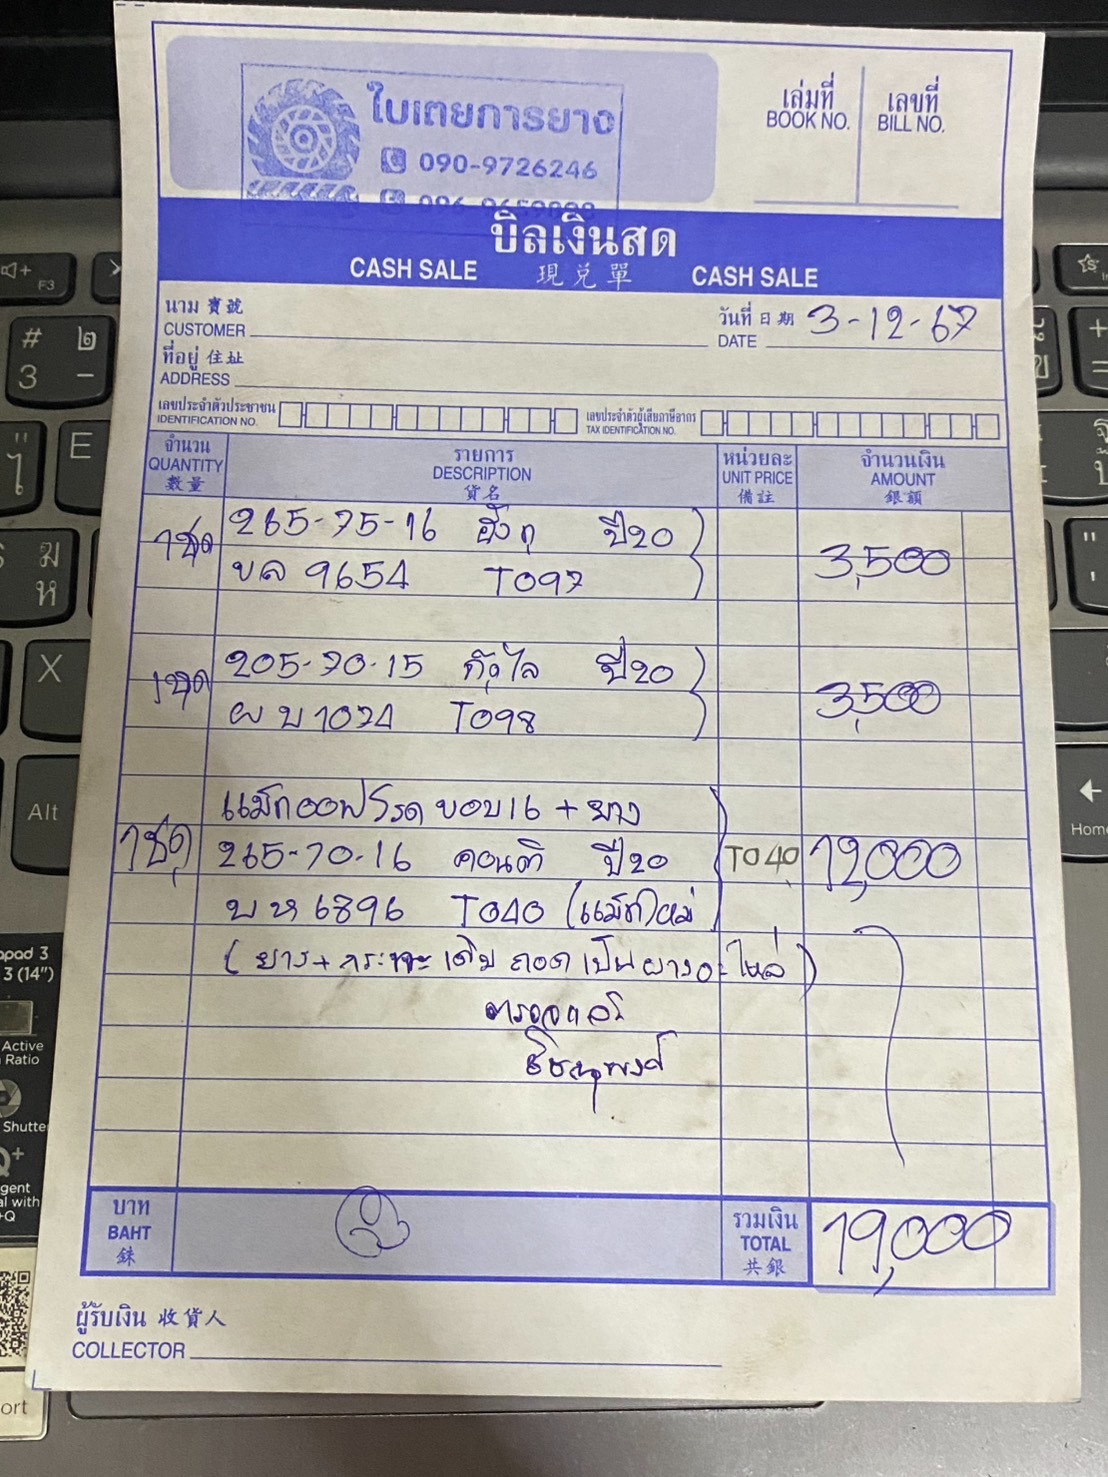 ใบเตยการยาง
090-9726246
เล่มที่ เลขที่
BOOK NO. BILL NO.
บิลเงินสด
CASH SALE 現兌單 CASH SALE
นาม 寶號
CUSTOMER
วันที่ 日期 3-12-67
DATE
ที่อยู่ 住址
ADDRESS
เลขประจำตัวประชาชน
IDENTIFICATION NO.
เลขประจำตัวผู้เสียภาษีอากร
TAX IDENTIFICATION NO.
จำนวน รายการ หน่วยละ จำนวนเงิน
QUANTITY DESCRIPTION UNIT PRICE AMOUNT
數量 貨名 備註 銀額
1ชุด 265-75-16 ปี20 3,500
บล 9654 T097
1ชุด 205-70-15 ปี20 3,500
ผบ 1074 T098
แม็กออฟโรด ขอบ16 + ยาง
1ชุด 265-70-16 คอนติ ปี20 T040 12,000
บห 6896 T040 (แม็กใหม่)
(ยาง+กระทะเดิม ถอดเป็นยางอะไหล่)
ตรวจแล้ว
บาท รวมเงิน
BAHT TOTAL 19,000
銖 共銀
ผู้รับเงิน 收貨人
COLLECTOR
# ๒
3 -
F3
E
X
Alt
Home
3 (14")
Active
Ratio
Shutte